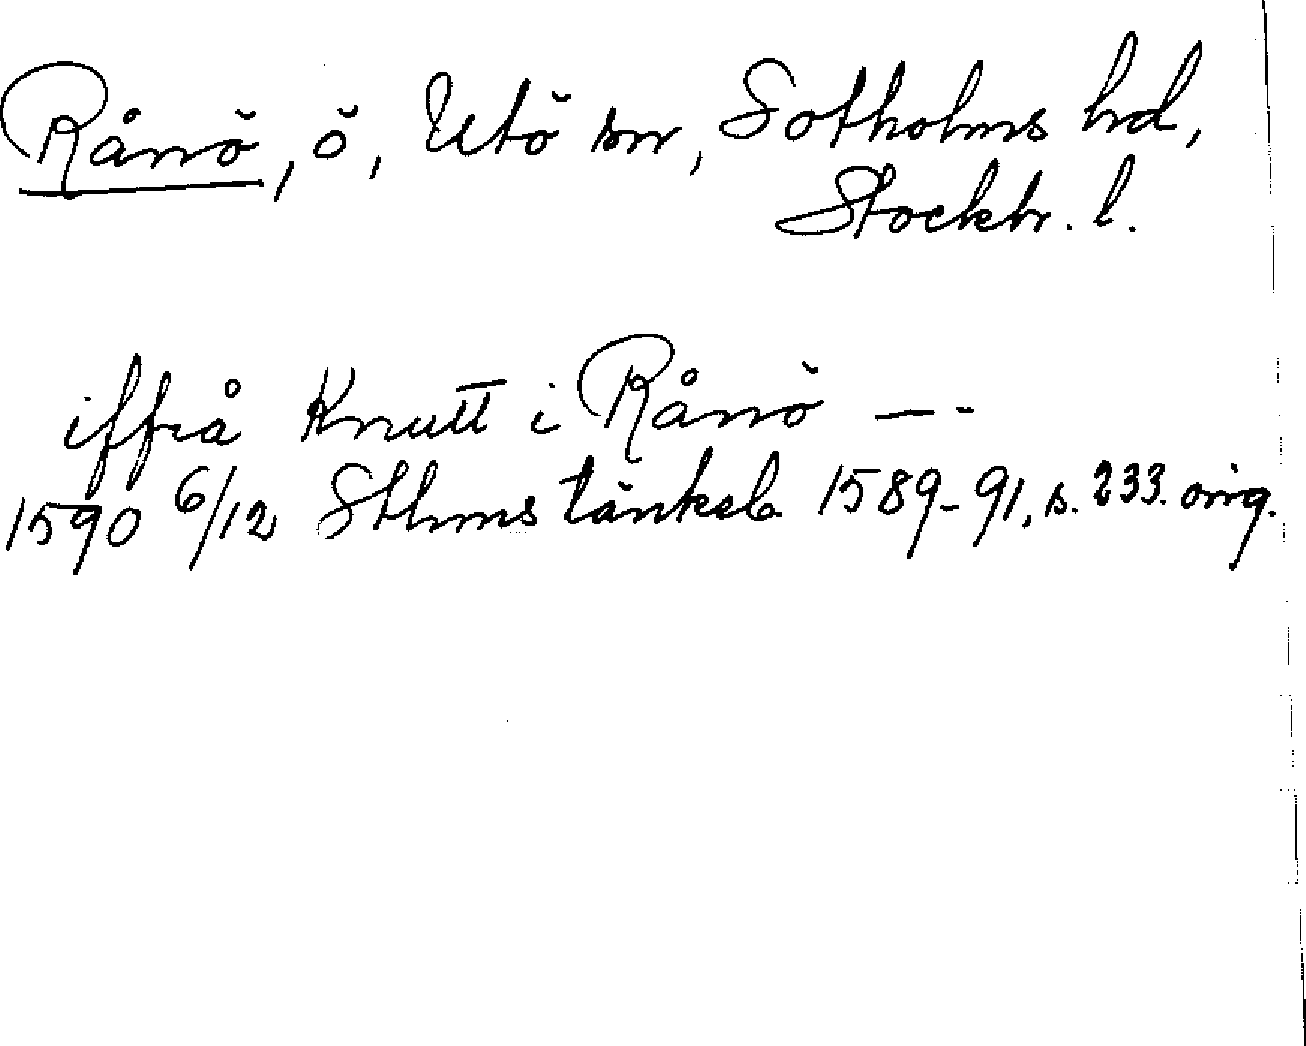 Rånö, ö, Utö sn, Sotholms hd,
Stockh. l.
iffrå Knutt i Rånö — -
1590 6/12 Sthms tänkeb. 1589-91, s. 233. orig.